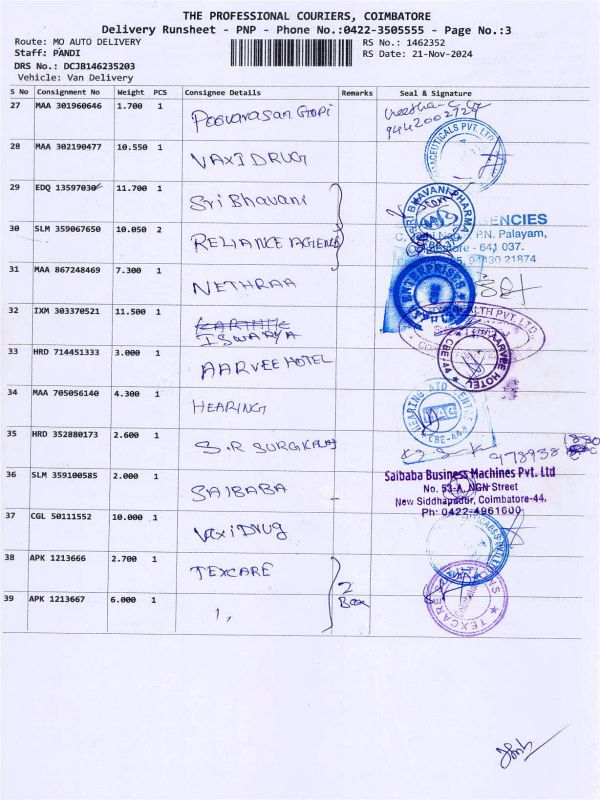 THE PROFESSIONAL COURIERS, COIMBATORE
Delivery Runsheet - PNP - Phone No.:0422-3505555 - Page No.:3
Route: MO AUTO DELIVERY
RS No.: 1462352
Staff: PANDI
RS Date: 21-Nov-2024
DRS No.: DCJB146235203
Vehicle: Van Delivery
S No Consignment No Weight PCS Consignee Details Remarks Seal & Signature
27 MAA 301960646 1.700 1 Poovarasan Gopi
9442002727
28 MAA 302190477 10.550 1 VAXI DRUG
CEUTICALS PVT. LTD
29 EDQ 13597030 11.700 1 Sri Bhavani
SRI BHAVANI PHARMA
30 SLM 359067650 10.050 2 RELIANCE AGENC
ENCIES
P.N. Palayam,
ore - 641 037.
21874
31 MAA 867248469 7.300 1 NETHRAA
ENTERPRISES
32 IXM 303370521 11.500 1 KARTHIK
ISWARYA
LTH PVT. LTD.
33 HRD 714451333 3.000 1 AARVEE HOTEL
AARVEE HOTEL
CBE-44
34 MAA 705056140 4.300 1 HEARING
HEARING AID CENTRE
HAC
CBE-44
35 HRD 352880173 2.600 1 S.R SURGICALS
36 SLM 359100585 2.000 1 SAIBABA
Saibaba Business Machines Pvt. Ltd
No. 53-A, NGN Street
New Siddhapudur, Coimbatore-44,
Ph: 0422-4961600
37 CGL 50111552 10.000 1 VaxiDrug
38 APK 1213666 2.700 1 TEXCARE
2
Box
39 APK 1213667 6.000 1 ,,
TEXCARE